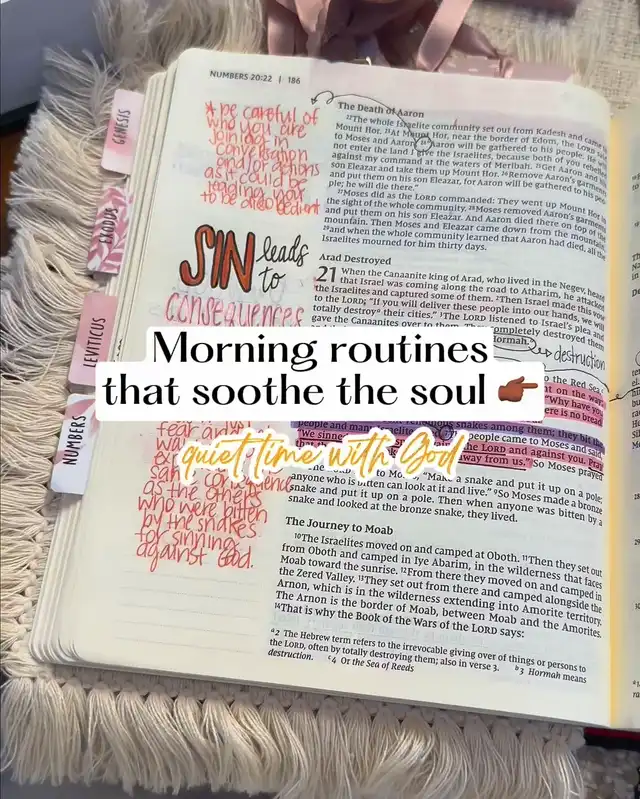 NUMBERS 20:22 | 186
GENESIS
EXODUS
LEVITICUS
NUMBERS
* be careful of
who you are
joining in
conversation
and/or actions
as it could be
leading you
to be disobedient
SIN leads
to
consequences
fear and
sa
as the others
who were bitten
by the snakes
for sinning
against God.
The Death of Aaron
22The whole Israelite community set out from Kadesh and came to
Mount Hor. 23At Mount Hor, near the border of Edom, the LORD said
to Moses and Aaron, 24"Aaron will be gathered to his people. He will
not enter the land I give the Israelites, because both of you rebelled
against my command at the waters of Meribah. 25Get Aaron and his
son Eleazar and take them up Mount Hor. 26Remove Aaron's garments
and put them on his son Eleazar, for Aaron will be gathered to his peo-
ple; he will die there."
27Moses did as the LORD commanded: They went up Mount Hor in
the sight of the whole community. 28Moses removed Aaron's garments
and put them on his son Eleazar. And Aaron died there on top of the
mountain. Then Moses and Eleazar came down from the mountain,
29and when the whole community learned that Aaron had died, all the
Israelites mourned for him thirty days.
Arad Destroyed
21 When the Canaanite king of Arad, who lived in the Negev, heard
that Israel was coming along the road to Atharim, he attacked
the Israelites and captured some of them. 2Then Israel made this vow
to the LORD: "If you will deliver these people into our hands, we will
totally destroy a their cities." 3The LORD listened to Israel's plea and
gave the Canaanites over to them. They completely destroyed them
Hormah.
destruction
Morning routines
that soothe the soul 👉🏾
quiet time with God
to the Red Sea,
"Why have you
there is no bread
snakes among them; they bit the
people and many Israelites
The people came to Moses and said,
"We sinned
the LORD and against you. Pray
away from us." So Moses prayed
"Make a snake and put it up on a pole;
anyone who is bitten can look at it and live." 9So Moses made a bronze
snake and put it up on a pole. Then when anyone was bitten by a
snake and looked at the bronze snake, they lived.
The Journey to Moab
10The Israelites moved on and camped at Oboth. 11Then they set out
from Oboth and camped in Iye Abarim, in the wilderness that faces
Moab toward the sunrise. 12From there they moved on and camped in
the Zered Valley. 13They set out from there and camped alongside the
Arnon, which is in the wilderness extending into Amorite territory.
The Arnon is the border of Moab, between Moab and the Amorites.
14That is why the Book of the Wars of the LORD says:
a2 The Hebrew term refers to the irrevocable giving over of things or persons to
the LORD, often by totally destroying them; also in verse 3. b3 Hormah means
destruction. c4 Or the Sea of Reeds